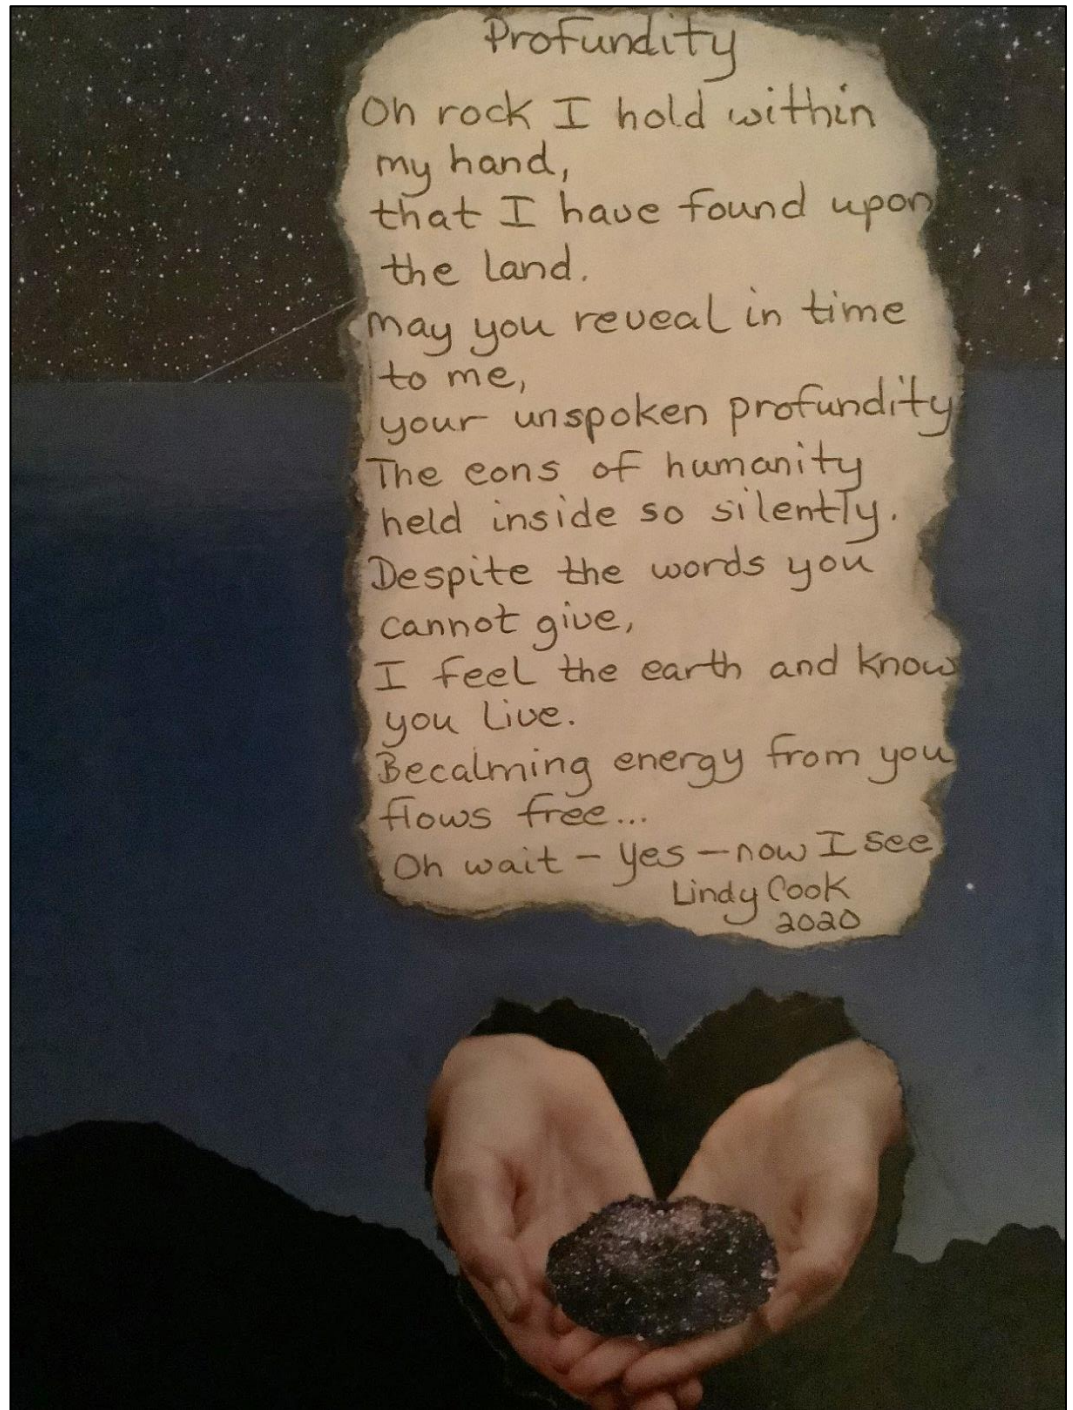 Profundity
Oh rock I hold within
my hand,
that I have found upon
the land.
May you reveal in time
to me,
your unspoken profundity
The eons of humanity
held inside so silently.
Despite the words you
cannot give,
I feel the earth and know
you live.
Becalming energy from you
flows free...
Oh wait - yes - now I see
Lindy Cook
2020